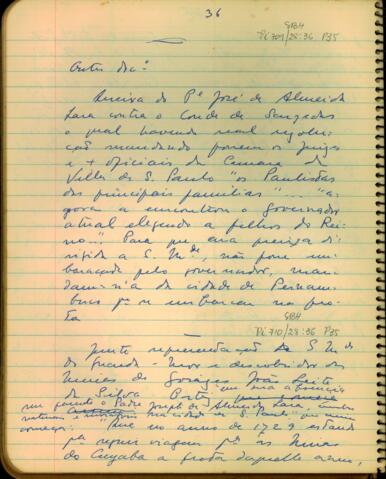 36
SBH
Pi 709/28:36 P35
Outro doc:
Queixa do Pe José de Almeida
Lara contra o Conde de Sarzedas
o qual havendo real resolu-
ção mandando porem os Juizes
e + oficiais da Camara da
Villa de S. Paulo "os Paulistas
das principais familias" ... "a-
gora a encontrou o governador
atual elegendo a filhos do Rei-
no..." Para que essa queixa di-
rigida a S. Mde, não fosse em-
baraçada pelo governador, man-
dam-n'a da cidade de Pernam-
buco pa se embarcar na fro-
ta
SBH
Pi 710/28:36 P35
Junto representação a S. Mde
do Guarda-Mor e descobridor das
Minas de Goiazes João Leite
da Silva Ortiz
um genro o Padre Joseph de Almeida Lara, ambos
naturaes e da cidade de S. Paulo
começa: "Que no anno de 1729 estando
pa seguir viagem pa as Minas
de Cuyaba a frota daquelle anno,